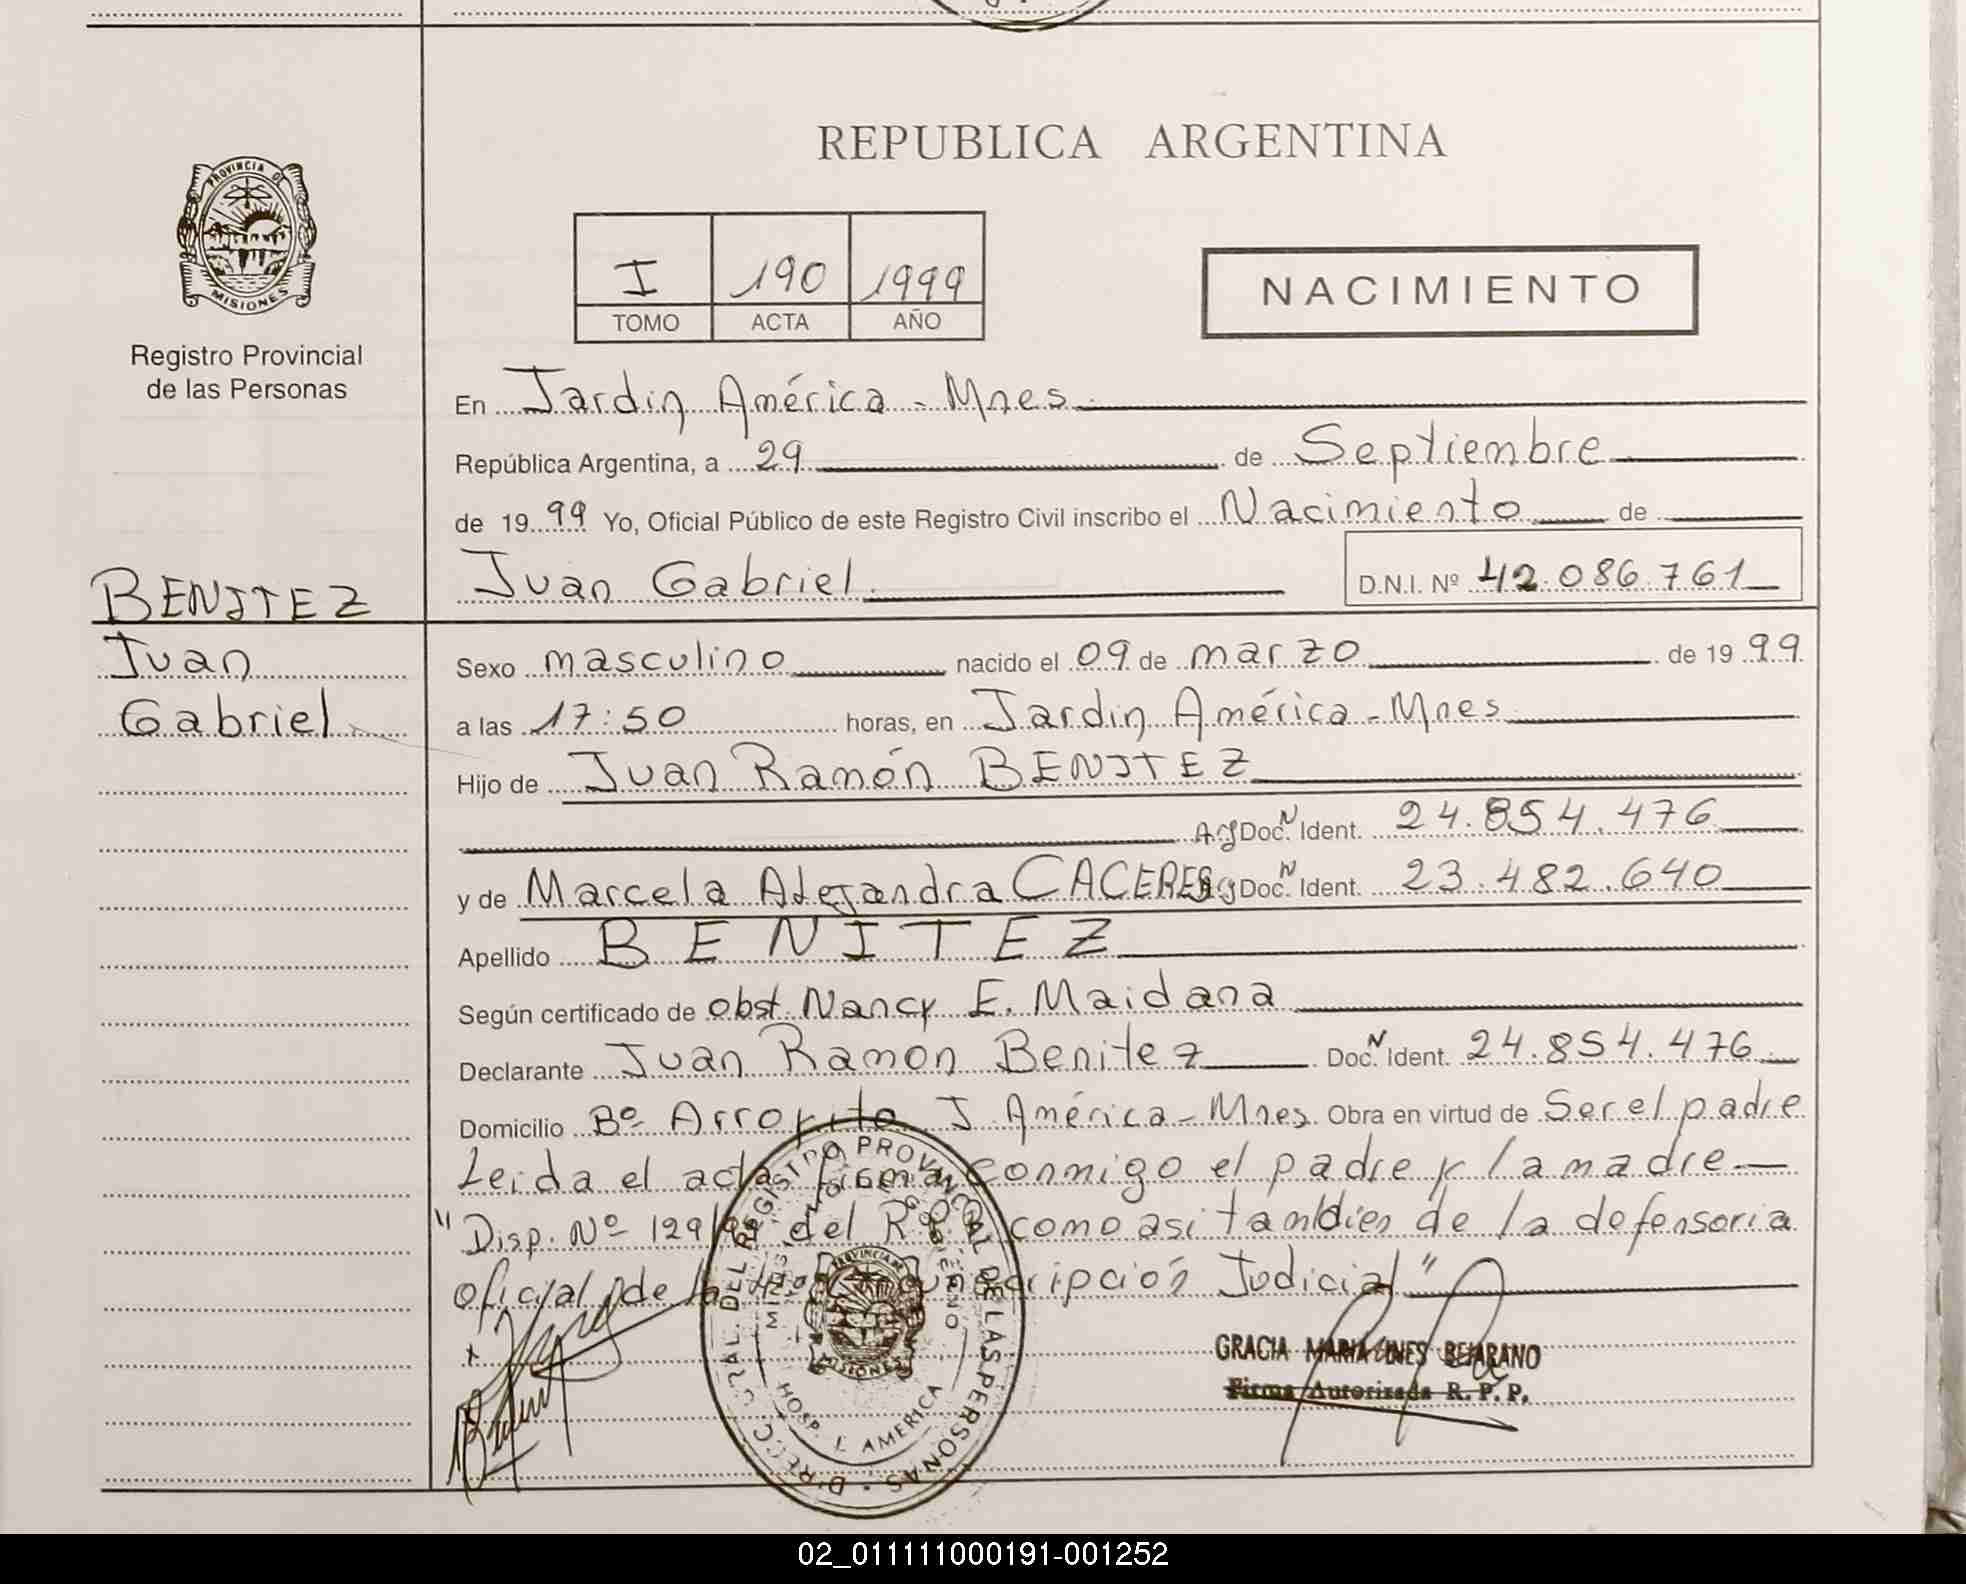 REPUBLICA ARGENTINA
PROVINCIA DE
MISIONES
Registro Provincial
de las Personas
I 190 1999
TOMO ACTA AÑO
NACIMIENTO
En Jardin América - Mnes
República Argentina, a 29 de Septiembre
de 1999 Yo, Oficial Público de este Registro Civil inscribo el Nacimiento de
Juan Gabriel D.N.I. Nº 42.086.761
BENITEZ
Juan
Gabriel
Sexo masculino nacido el 09 de marzo de 1999
a las 17:50 horas, en Jardin América - Mnes
Hijo de Juan Ramón BENITEZ
Doc. Ident. 24.854.476
y de Marcela Alejandra CACERES Doc. Ident. 23.482.640
Apellido BENITEZ
Según certificado de obst. Nancy E. Maidana
Declarante Juan Ramon Benitez Doc. Ident. 24.854.476
Domicilio Bº Arroyito J. América - Mnes. Obra en virtud de Ser el padre
Leida el acta firma conmigo el padre y la madre
"Disp. Nº 129 del como asi tambien de la defensoria
oficial de la Judicial"
DIRECC. GRAL. DEL REGISTRO PROVINCIAL DE LAS PERSONAS
GOBIERNO
HOSP. J. AMERICA
PROVINCIA
MISIONES
GRACIA MARIA INES BEJARANO
Firma Autorizada R. P. P.
02_011111000191-001252